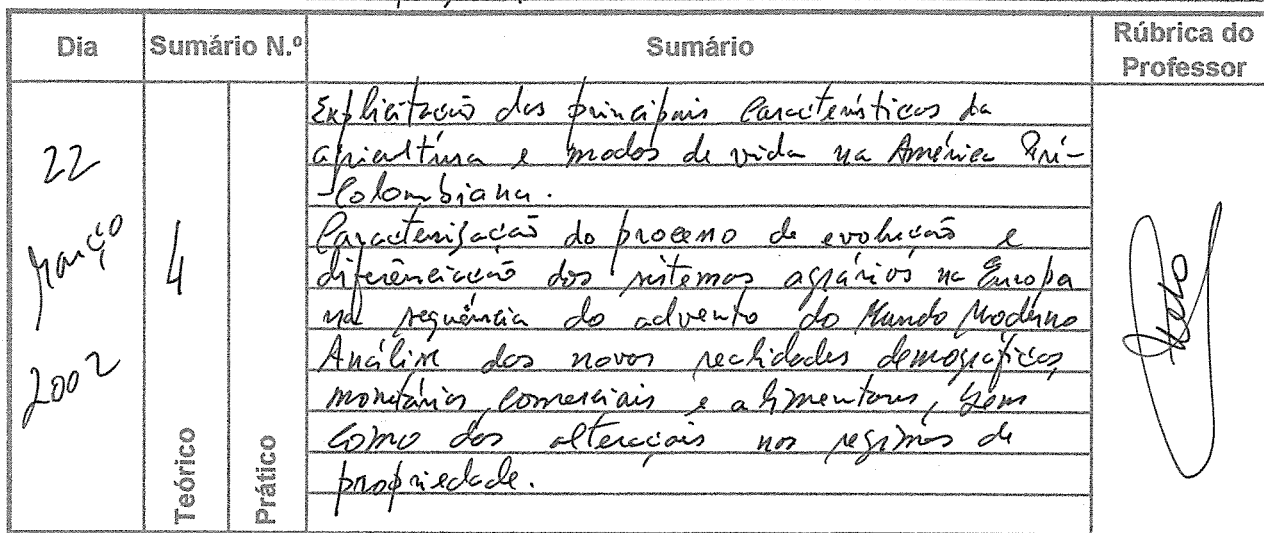 Dia Sumário N.º Sumário Rúbrica do Professor
22
Março
2002
4
Teórico
Prático
Explicitação das principais características da
agricultura e modos de vida na América Pré-
-Colombiana.
Caracterização do processo de evolução e
diferenciação dos sistemas agrários na Europa
na sequência do advento do Mundo Moderno
Análise das novas realidades demográficas,
monetárias, comerciais e alimentares, bem
como das alterações nos regimes de
propriedade.